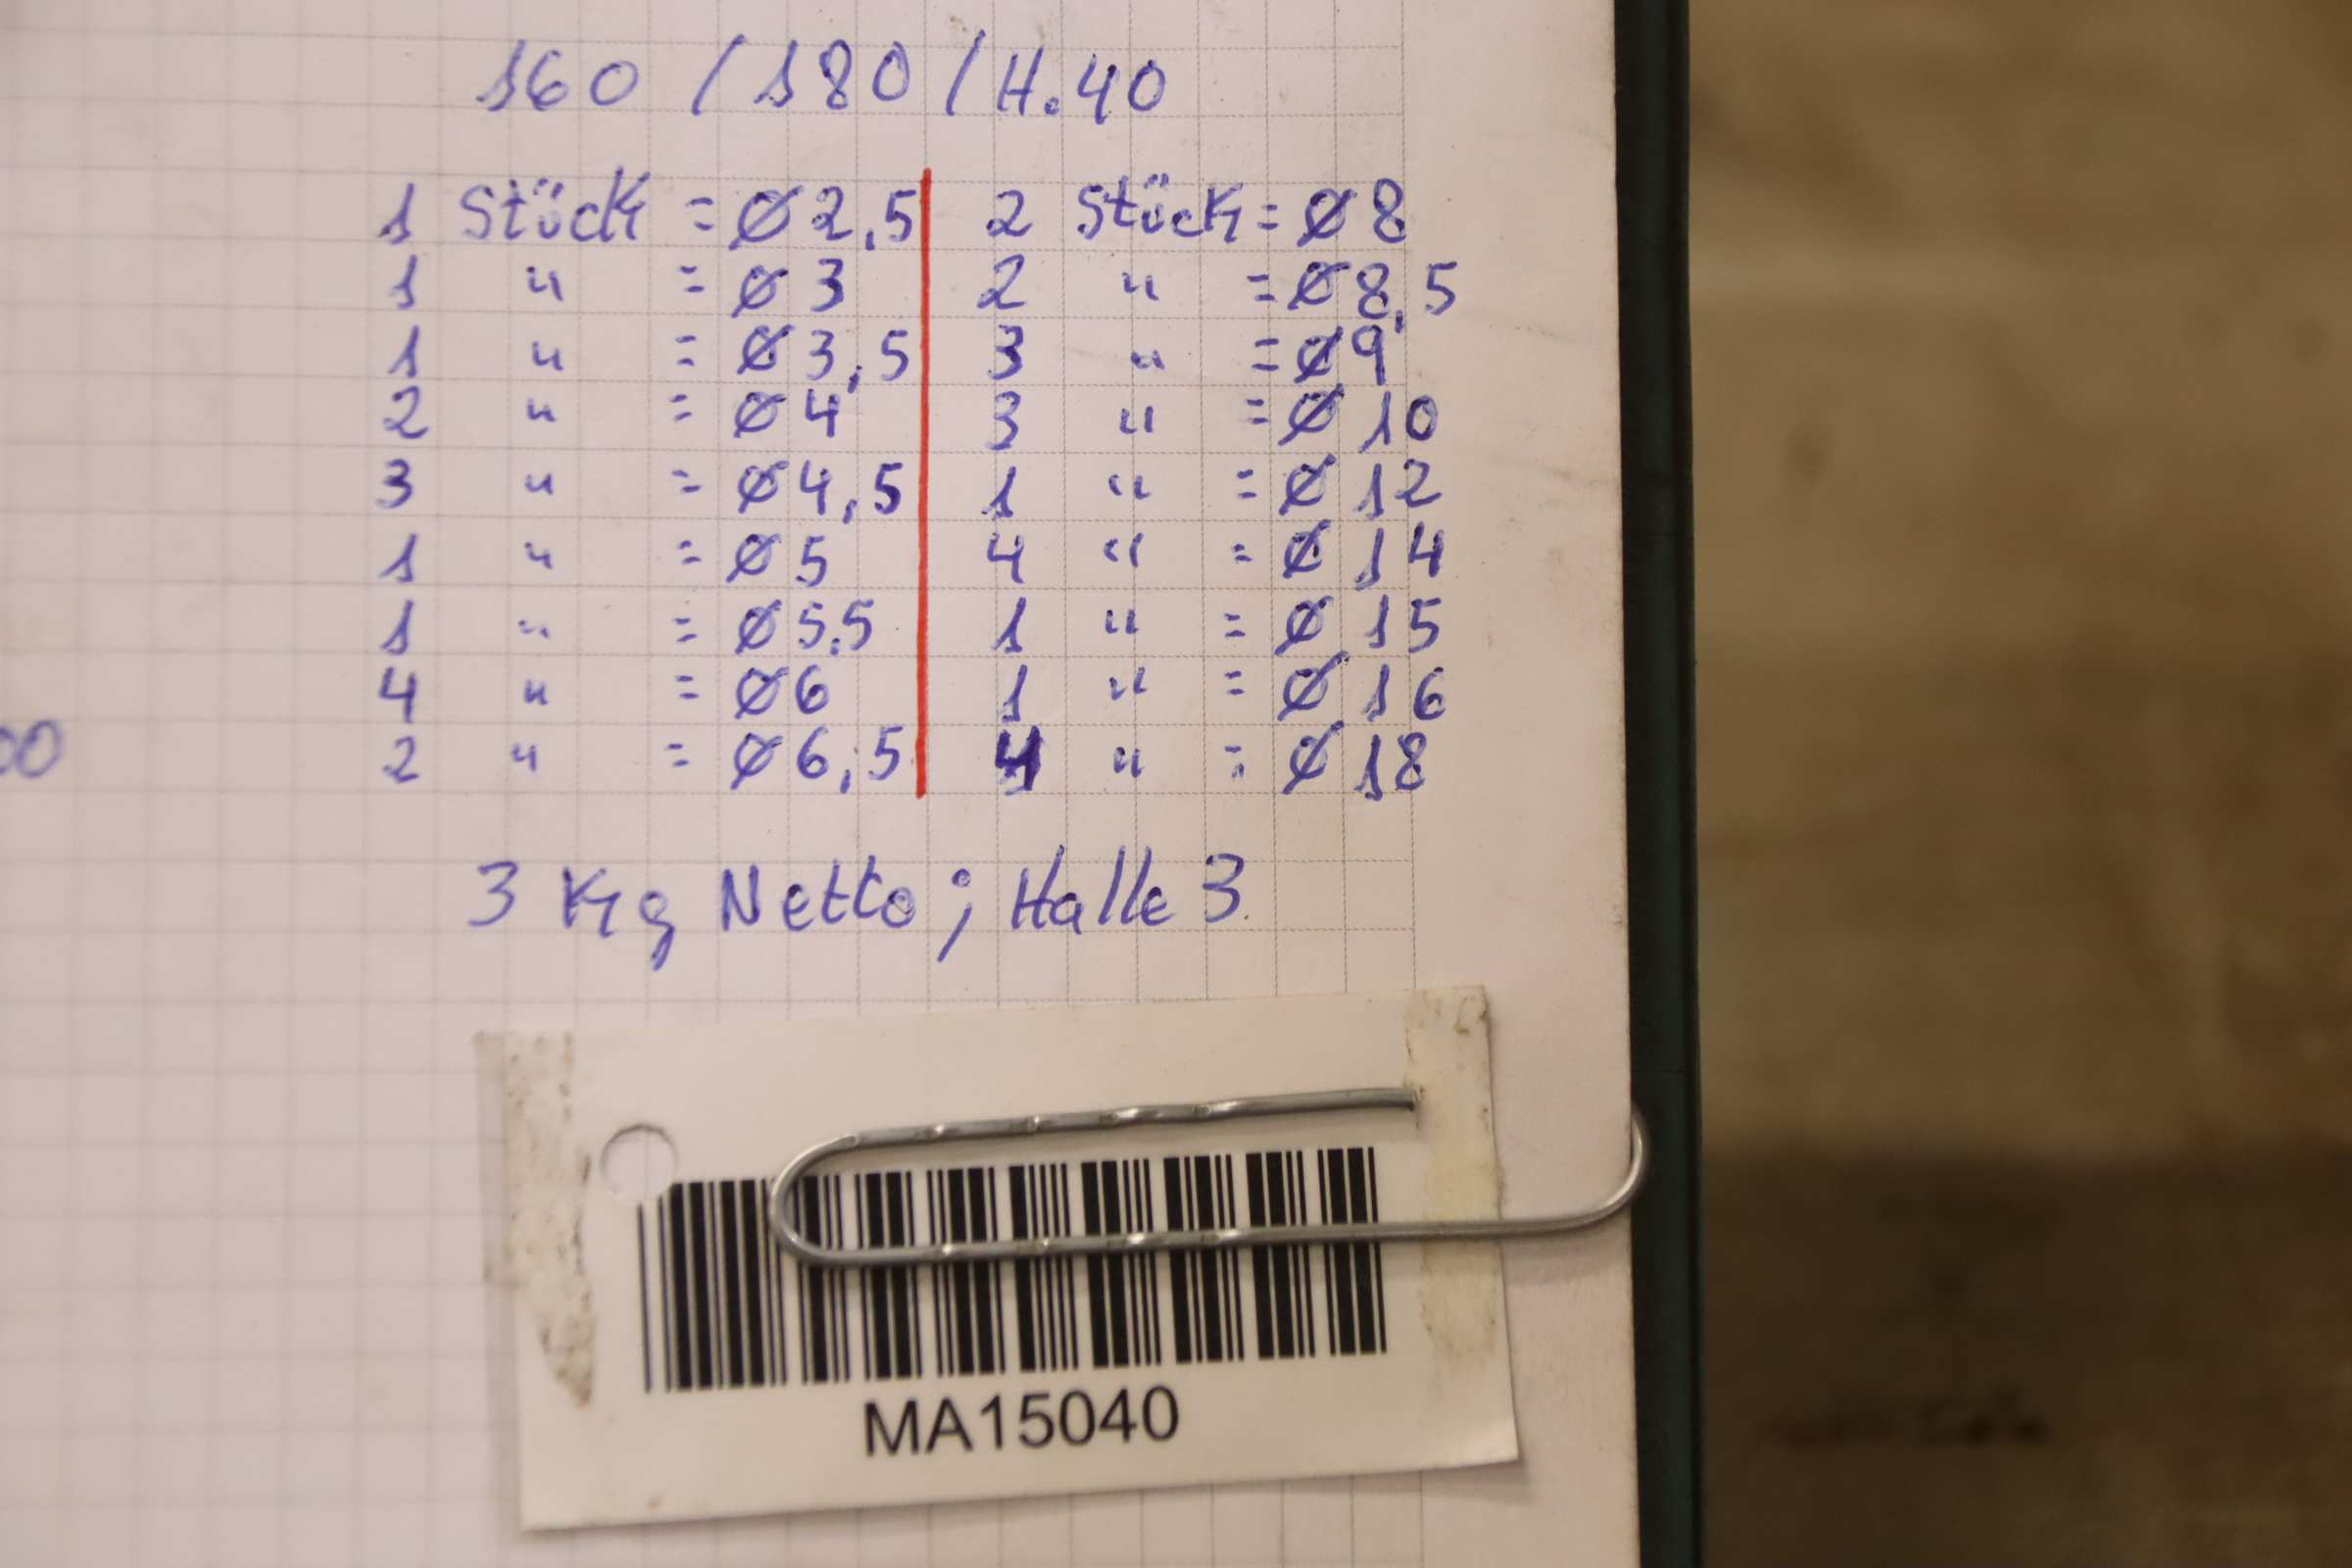 160 / 180 / H.40
1 Stück = Ø 2,5
1 " = Ø 3
1 " = Ø 3,5
2 " = Ø 4
3 " = Ø 4,5
1 " = Ø 5
1 " = Ø 5,5
4 " = Ø 6
2 " = Ø 6,5
2 Stück = Ø 8
2 " = Ø 8,5
3 " = Ø 9
3 " = Ø 10
1 " = Ø 12
4 " = Ø 14
1 " = Ø 15
1 " = Ø 16
4 " = Ø 18
3 Kg Netto; Halle 3
MA15040